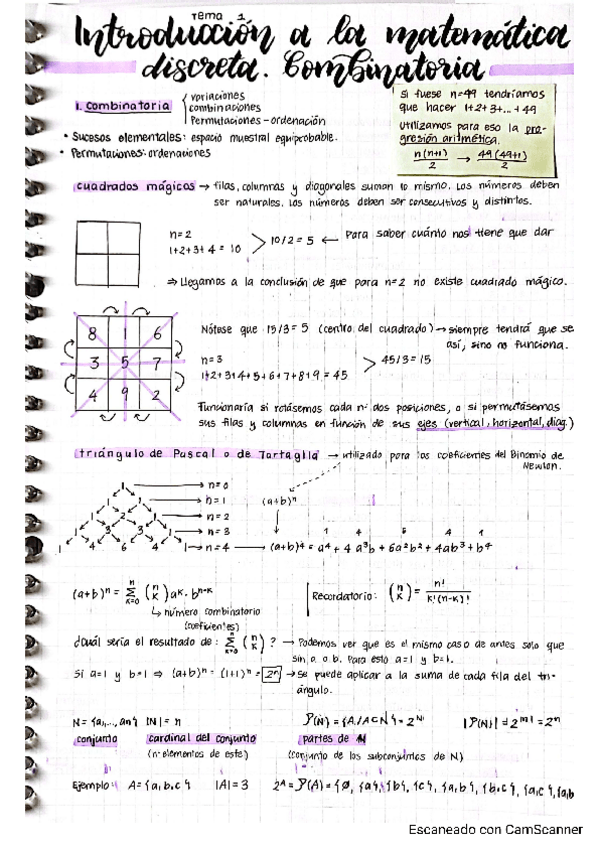 Tema 1
Introducción a la matemática
discreta. Combinatoria
1. Combinatoria
variaciones
combinaciones
Permutaciones - ordenación
• Sucesos elementales: espacio muestral equiprobable.
• Permutaciones: ordenaciones
Si fuese n=49 tendríamos
que hacer 1+2+3+...+49
Utilizamos para eso la pro-
gresión aritmética.
n(n+1)/2 → 49(49+1)/2
cuadrados mágicos → filas, columnas y diagonales suman lo mismo. Los números deben
ser naturales. Los números deben ser consecutivos y distintos.
n=2
1+2+3+4 = 10 > 10/2 = 5 ← Para saber cuánto nos tiene que dar
⇒ Llegamos a la conclusión de que para n=2 no existe cuadrado mágico.
8 1 6
3 5 7
4 9 2
Nótese que 15/3 = 5 (centro del cuadrado) → siempre tendrá que ser
así, sino no funciona.
n=3
1+2+3+4+5+6+7+8+9 = 45 > 45/3 = 15
Funcionaría si rotásemos cada nº dos posiciones, o si permutásemos
sus filas y columnas en función de sus ejes (vertical, horizontal, diag.)
triángulo de Pascal o de Tartaglia → utilizado para los coeficientes del Binomio de
Newton.
1 → n=0
1 1 → n=1 (a+b)ⁿ
1 2 1 → n=2
1 3 3 1 → n=3 1 4 6 4 1
1 4 6 4 1 → n=4 → (a+b)⁴ = a⁴ + 4a³b + 6a²b² + 4ab³ + b⁴
(a+b)ⁿ = Σ (n k) aᵏ · bⁿ⁻ᵏ
n
k=0
↳ número combinatorio
(coeficientes)
Recordatorio: (n k) = n!/k!(n-k)!
¿Cuál sería el resultado de: Σ (n k) ? → Podemos ver que es el mismo caso de antes solo que
sin a o b. Para esto a=1 y b=1.
Si a=1 y b=1 ⇒ (a+b)ⁿ = (1+1)ⁿ = 2ⁿ → se puede aplicar a la suma de cada fila del tri-
ángulo.
N = {a₁,..., aₙ} |N| = n P(N) = {A/A⊂N} = 2ᴺ |P(N)| = 2^|N| = 2ⁿ
conjunto cardinal del conjunto partes de N
(nº elementos de este) (conjunto de los subconjuntos de N)
Ejemplo: A = {a,b,c} |A| = 3 2ᴬ = P(A) = {∅, {a}, {b}, {c}, {a,b}, {b,c}, {a,c}, {a,b
Escaneado con CamScanner